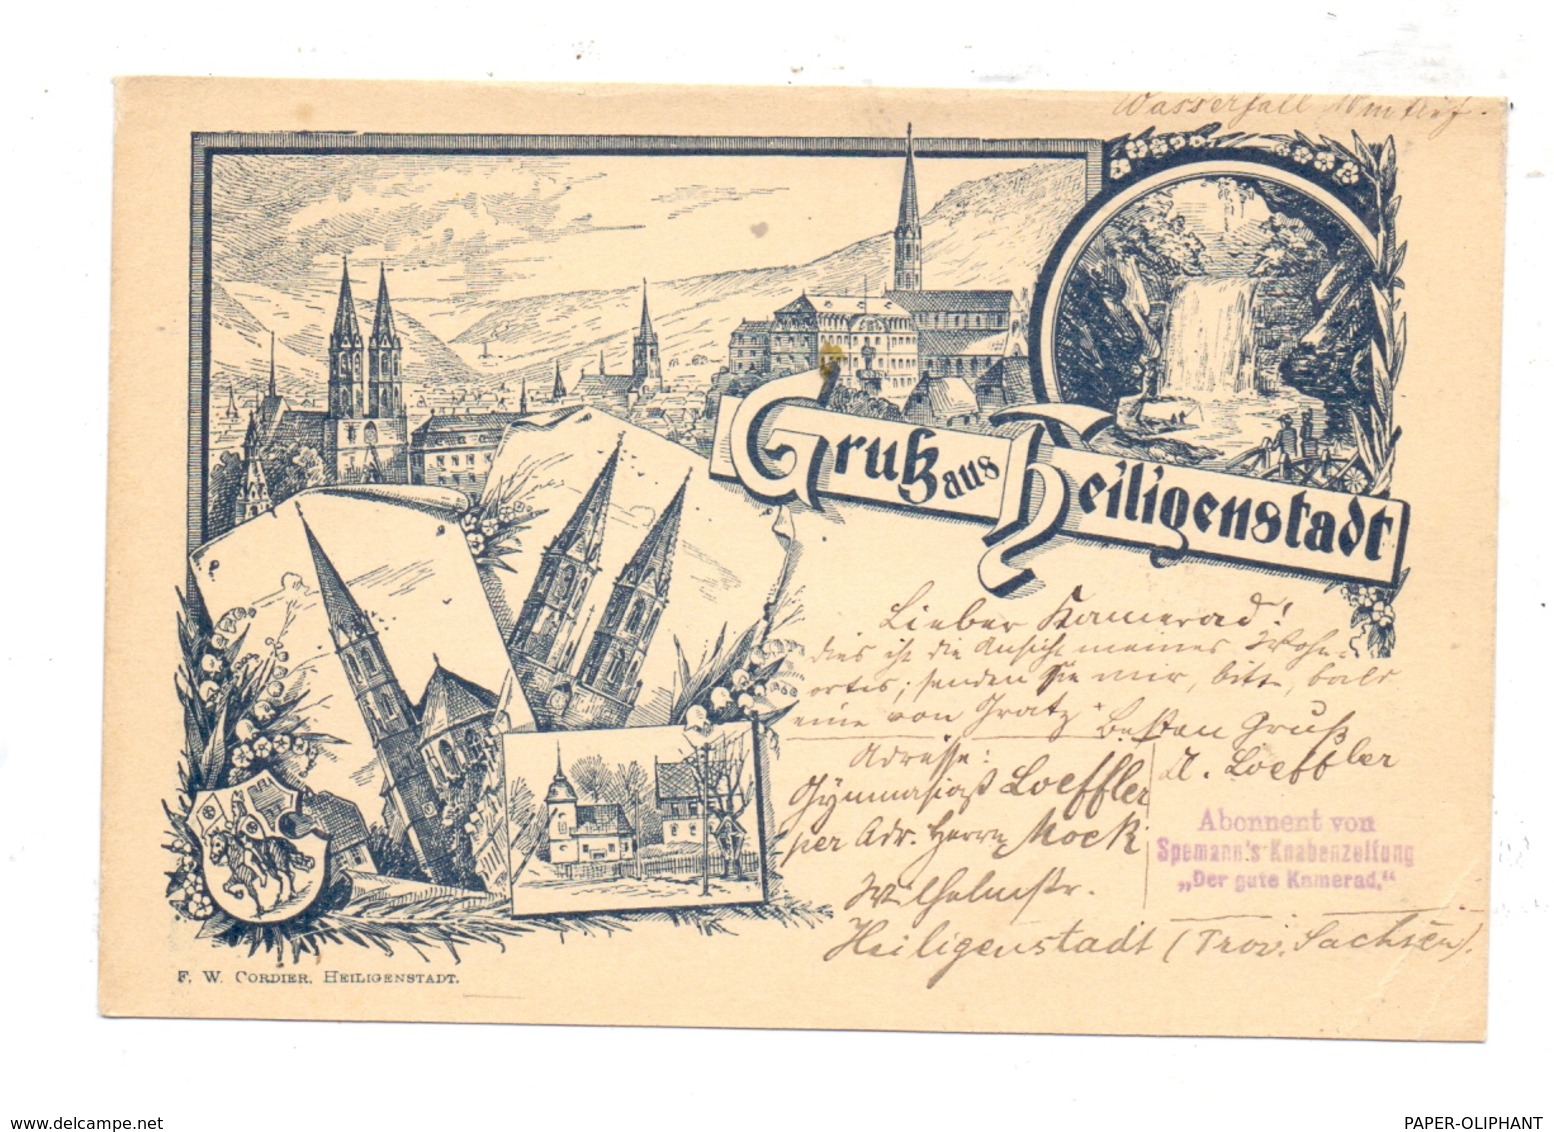 Wasserfall 10 m tief.
Gruß aus Heiligenstadt
Lieber Kamerad!
dies ist die Ansicht meines Wohn-
ortes; senden Sie mir, bitte, bald
eine von Gratz. Besten Gruß
A. Loeffler
Adresse:
Gymnasiast Loeffler
per Adr. Herrn Mock
Wilhelmstr.
Heiligenstadt (Prov. Sachsen).
Abonnent von
Spemann's Knabenzeitung
„Der gute Kamerad.“
F. W. CORDIER, HEILIGENSTADT.
www.delcampe.net
PAPER-OLIPHANT